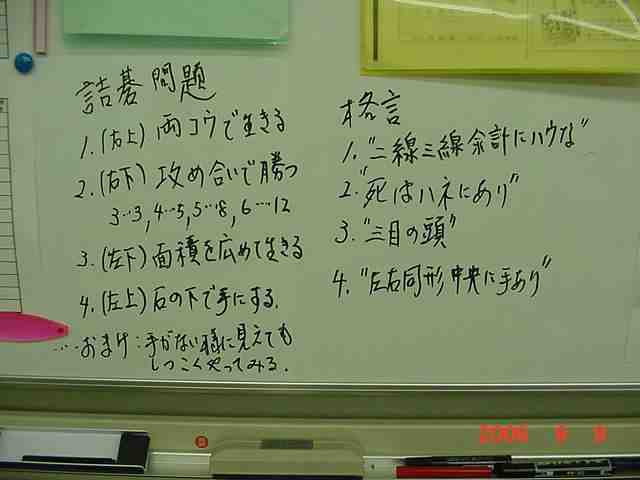 詰碁問題
1.(右上)両コウで生きる
2.(右下)攻め合いで勝つ
3…3,4…5,5…8,6…12
3.(左下)面積を広めて生きる
4.(左上)石の下で手にする.
…おまけ:手がない様に見えても
しつこくやってみる.
格言
1."二線三線余計にハウな"
2."死はハネにあり"
3."三目の頭"
4."左右同形中央に手あり"